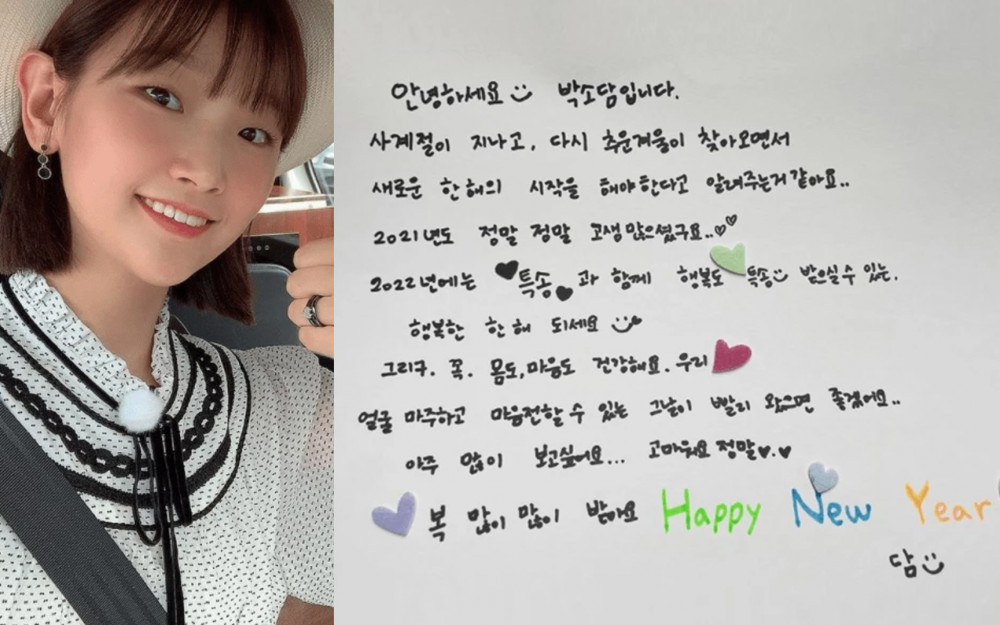 안녕하세요 박소담입니다.
사계절이 지나고, 다시 추운겨울이 찾아오면서
새로운 한 해의 시작을 해야한다고 알려주는거 같아요..
2021년도 정말 정말 고생 많으셨구요..♡♡
2022년에는 ♥특송♥과 함께 행복도 특송 받으실 수 있는,
행복한 한 해 되세요
그리구. 꼭. 몸도, 마음도 건강해요. 우리
얼굴 마주하고 마음전할 수 있는 그날이 빨리 왔으면 좋겠어요..
아주 많이 보고싶어요... 고마워요 정말♥.♥
복 많이 많이 받아요 Happy New Year
담